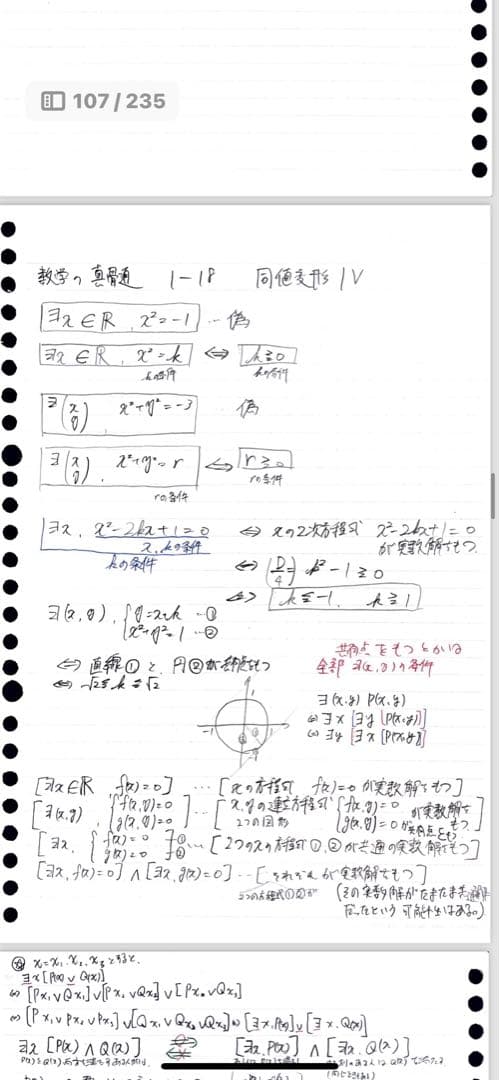 107 / 235
数学の真骨頂 1-18 同値変形 IV
∃x∈ℝ, x²=-1 … 偽
∃x∈ℝ, x²=k ⇔ k≧0
kの条件 kの条件
∃(x y) x²+y²=-3 偽
∃(x y), x²+y²=r ⇔ r≧0
rの条件 rの条件
∃x, x²-2kx+1=0 ⇔ xの2次方程式 x²-2kx+1=0
x,kの条件 が実数解をもつ
kの条件
⇔ (D/4=) k²-1≧0
⇔ k≦-1, k≧1
∃(x,y), { y=x+k …①
x²+y²=1 …②
⇔ 直線①と円②が共有点をもつ
⇔ -√2≦k≦√2
共有点をもつとかは
全部 ∃(x,y)の条件
∃(x,y) P(x,y)
⇔ ∃x [∃y [P(x,y)]]
⇔ ∃y [∃x [P(x,y)]]
[∃x∈ℝ, f(x)=0] … [xの方程式 f(x)=0 が実数解をもつ]
[∃(x,y) { f(x,y)=0 … [x,yの連立方程式 { f(x,y)=0 が実数解を
g(x,y)=0] 2つの図形 g(x,y)=0 が共有点をもつ]
[∃x, { f(x)=0 …① g(x)=0 …②] … [2つのxの方程式①,②が共通の実数解をもつ]
[∃x, f(x)=0] ∧ [∃x, g(x)=0] … [それぞれが実数解をもつ]
2つの方程式①②が
(その実数解がたまたま
だったという可能性はある。)
x=x₁, x₂, x₃とすると、
∃x[P(x) ∨ Q(x)]
⇔ [Px₁∨Qx₁]∨[Px₂∨Qx₂]∨[Px₃∨Qx₃]
⇔ [Px₁∨Px₂∨Px₃]∨[Qx₁∨Qx₂∨Qx₃] ⇔ [∃x.P(x)]∨[∃x.Q(x)]
∃x [P(x) ∧ Q(x)] ⇄ [∃x.P(x)] ∧ [∃x.Q(x)]